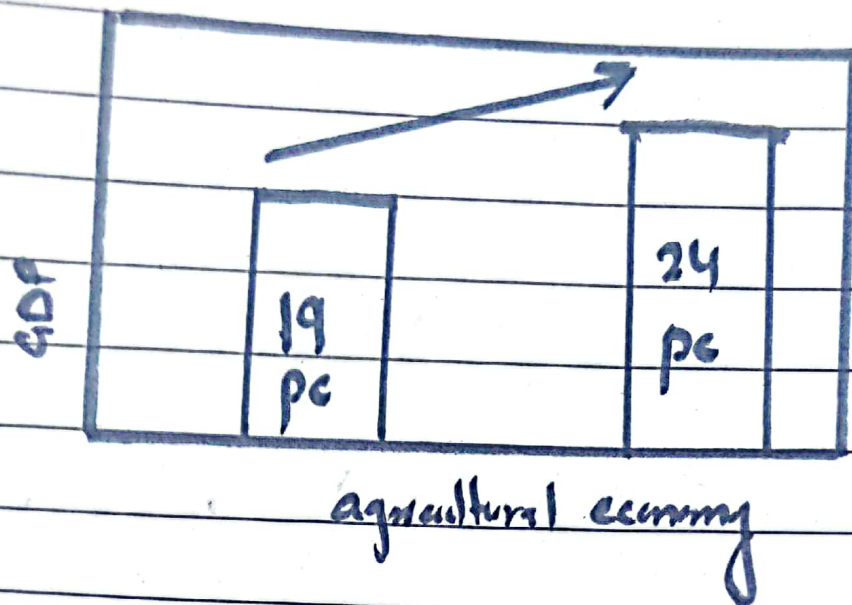 GDP
19
pc
24
pc
agricultural economy